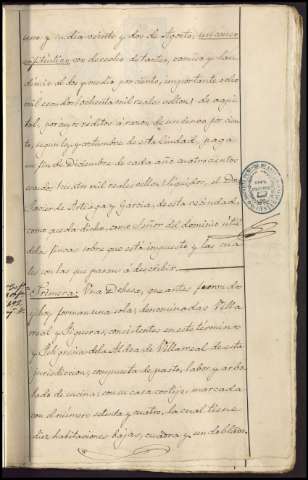 uno y medio veinte y dos de Agosto, un censo
enfitéutico con derecho de tanteo, comiso y lau-
demio al dos y medio por ciento, importante ocho
mil
ochenta mil reales vellon, de capi-
tal, cuyos réditos á razon de un cinco por cien-
to, segun ley y costumbre de esta Ciudad, paga
en fin de Diciembre de cada año cuatrocientos
mil reales vellon, líquidos, el Don
Javier de Artiaga y Garcia, de esta vecindad,
como queda dicho, como Señor del dominio util
de las fincas sobre que está impuesto y las cua-
les son las que paso a describir.
Primera: Una Dehesa, que antes fueron dos
y hoy forman una sola, denominadas Villa-
real y Figueras, consistentes en este término
y Feligresía de la Aldea de Villareal de esta
jurisdiccion, compuesta de pasto, labor y arbo-
lado de encina, con su casa cortijo, marcada
con el número setenta y cuatro, la cual tiene
diez habitaciones bajas, cuadra y un doblado.